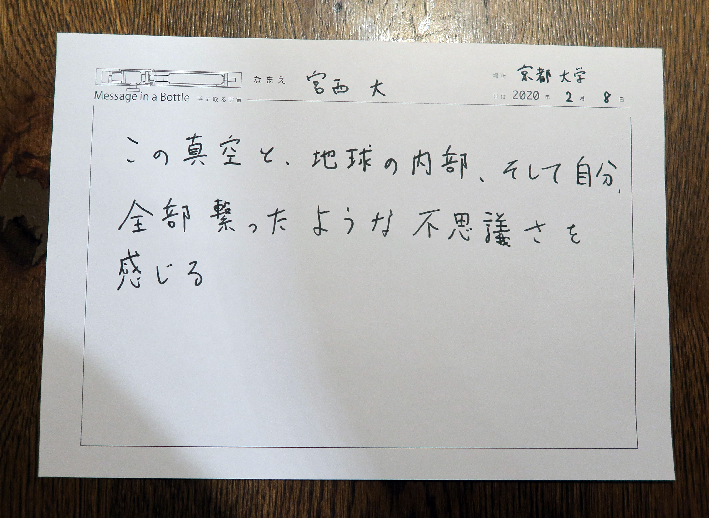 なまえ 宮西 大
場所 京都大学
Message in a Bottle
日付 2020年 2月 8日
この真空と、地球の内部、そして自分、
全部繋ったような不思議さを
感じる